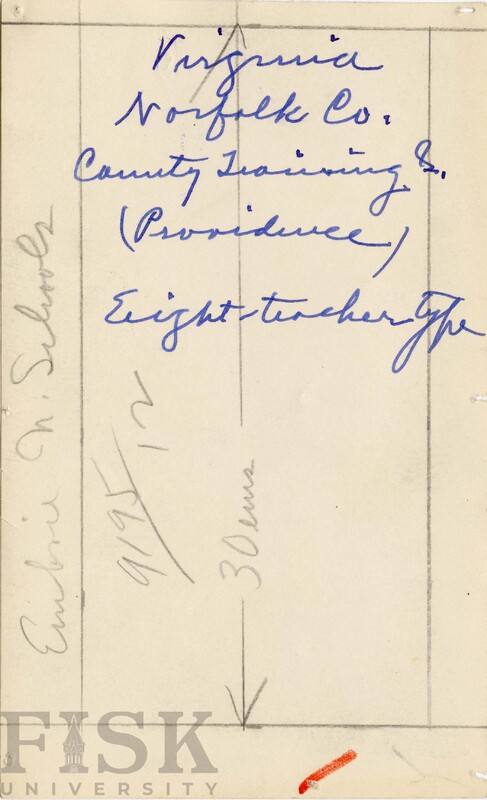 Virginia
Norfolk Co.
County Training S.
(Providence)
Eight-teacher type
Embree N. Schools
9195/12
30 ems
FISK
UNIVERSITY